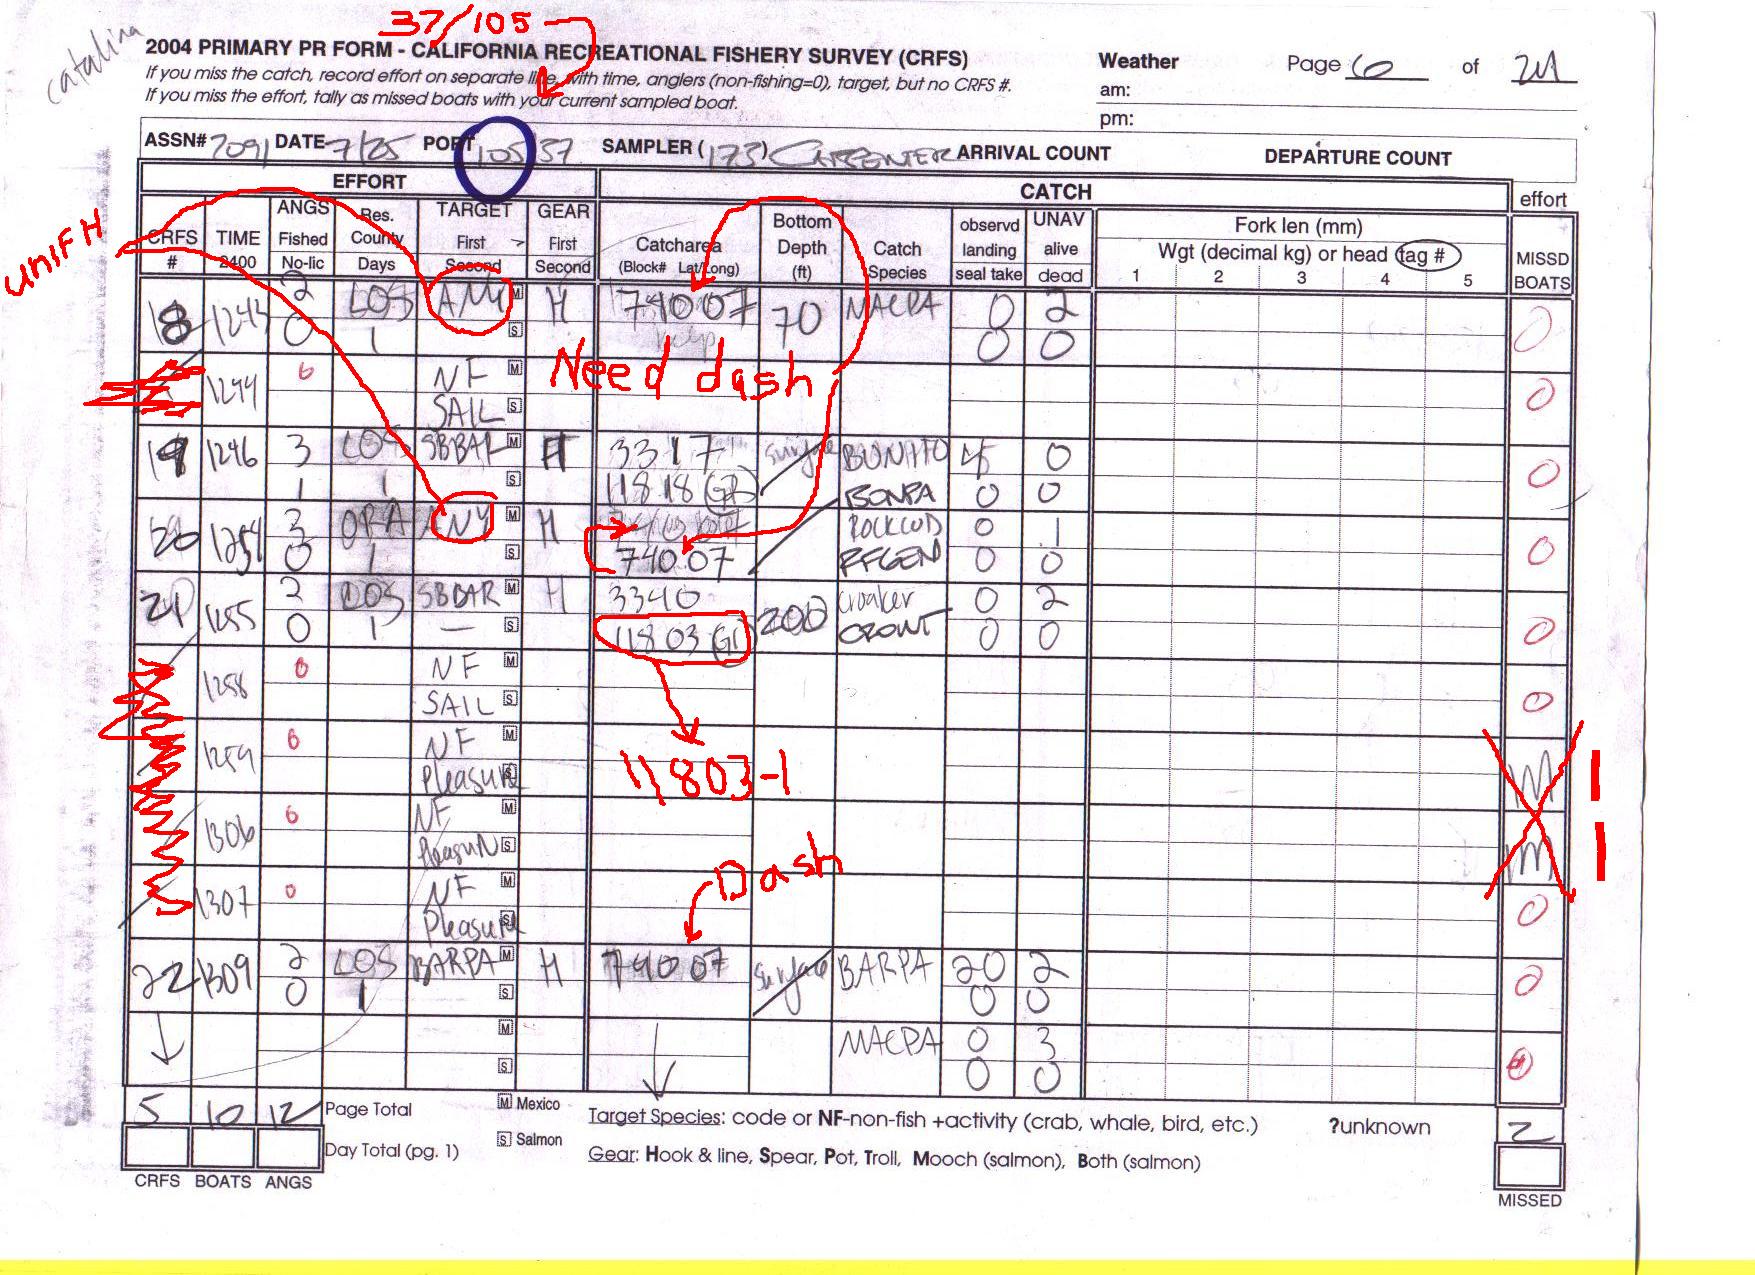 37/105
catalina
2004 PRIMARY PR FORM - CALIFORNIA RECREATIONAL FISHERY SURVEY (CRFS)
If you miss the catch, record effort on separate line, with time, anglers (non-fishing=0), target, but no CRFS #.
If you miss the effort, tally as missed boats with your current sampled boat.
Weather
am:
pm:
Page 6 of 24
ASSN# 7091 DATE 7/25 PORT 105 37 SAMPLER (173) CARPENTER ARRIVAL COUNT DEPARTURE COUNT
EFFORT CATCH effort
CRFS # TIME 2400 ANGS Fished No-lic Res. County Days TARGET First Second GEAR First Second Catcharea (Block# Lat/Long) Bottom Depth (ft) Catch Species observd landing seal take UNAV alive dead Fork len (mm) Wgt (decimal kg) or head tag # 1 2 3 4 5 MISSD BOATS
UNIFH
18 1243 2 LOS ANY M H 74007 70 MACPA 0 2 0
0 1 S kelp 0 0
Need dash
1244 0 NF M 0
SAIL S
19 1246 3 LOS SBBAR M H 3317 surface BONITO 45 0 0
1 1 S 11818 BONPA 0 0
20 1254 3 ORA ANY M H ROCKCOD 0 1 0
0 1 S 74007 RFGEN 0 0
21 1255 2 LOS SBBAR M H 3340 200 croaker 0 2 0
0 1 — S 11803 CROWT 0 0
1258 0 NF M 0
SAIL S
1259 0 NF M M 1
Pleasure S
11803-1
1306 0 NF M M 1
S
Dash
1307 0 NF M 0
Pleasure S
22 1309 2 LOS BARPA M H 74007 surface BARPA 20 2 0
0 1 S 0 0
M MACPA 0 3
S 0 0
5 10 12 Page Total M Mexico Target Species: code or NF-non-fish +activity (crab, whale, bird, etc.) ?unknown 2
Day Total (pg. 1) S Salmon Gear: Hook & line, Spear, Pot, Troll, Mooch (salmon), Both (salmon)
CRFS BOATS ANGS MISSED